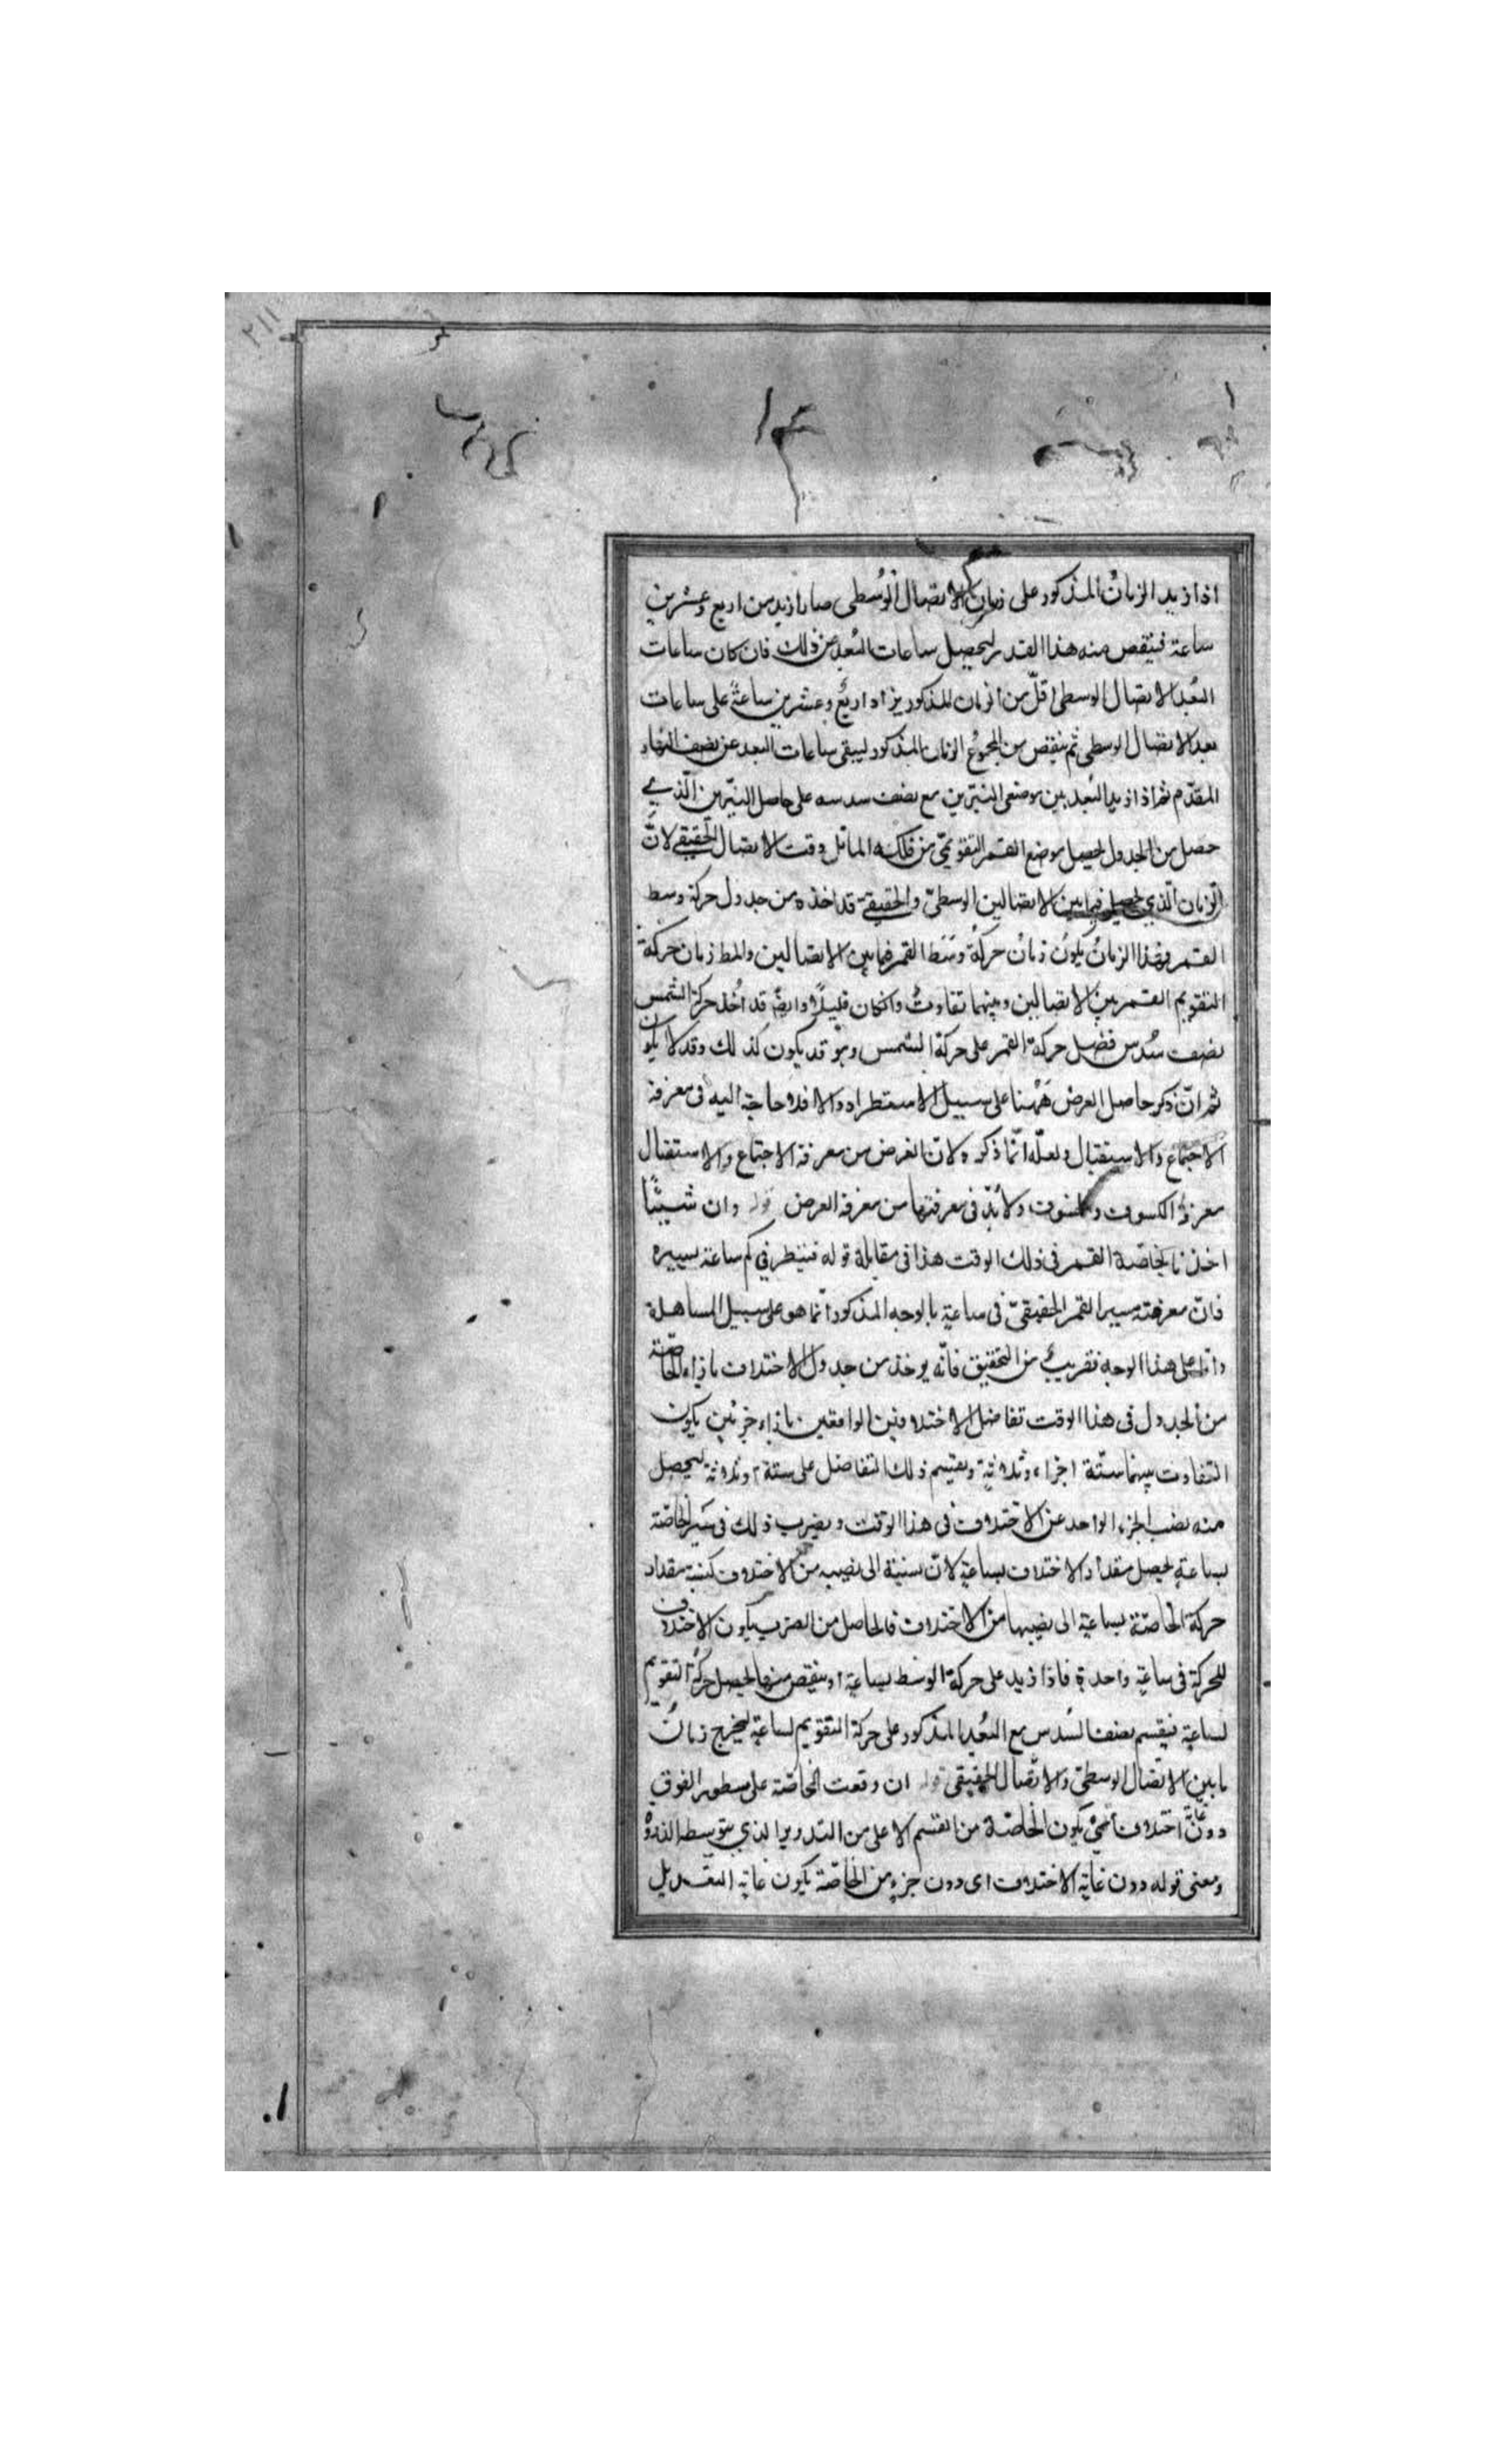 ٢١١
اذا زيد الزمانُ المذكور على زمان الاتصال الوُسطى صار ازيد من اربع وعشرين
ساعة فينقص منه هذا القدر ليحصل ساعات البُعد عن ذلك فان كان ساعات
البُعد الاتصال الوسطى اقلّ من الزمان المذكور يزاد اربعُ وعشرين ساعةً على ساعات
بعد الاتصال الوسطى ثم ينقص من المجموع الزمان المذكور ليبقى ساعات البعد عن نصف النهار
المقدّم ثم اذا زيد البُعد بين موضعى النيّرين مع نصف سدسه على حاصل النيّرين الّذي
حصل من الجدول يحصل موضع القمر التقويمىّ من فلكه المائل وقت الاتصال الحقيقى لانّ
الزمان الّذي يحصل فيما بين الاتصالين الوسطىّ والحقيقى قد اخذه من جدول حركة وسط
القمر فهذا الزمانُ يكونُ زمانُ حركة وسَط القمر فيما بين الاتصالين والمط زمان حركة
التقويم القمر بين الاتصالين وبينهما تفاوتٌ وانكان قليلًا وايضًا قد اُخذ حركة الشمس
نصف سُدس فضل حركة القمر على حركة الشمس وهو قد يكون كذلك وقد لا يكون
ثم انّ ذكر حاصل العرض هٰهنا على سبيل الاستطراد والا فلا حاجة اليه فى معرفة
الاجتماع والاستقبال ولعلّه انّما ذكره لانّ الغرض من معرفة الاجتماع والاستقبال
معرفة الكسوف والخسوف ولابُدّ فى معرفتها من معرفة العرض قوله وان شيئنا
اخذنا بخاصّة القمر فى ذلك الوقت هذا فى مقابلة قوله فينظر في كم ساعة يسيره
فانّ معرفته مسير القمر الحقيقىّ فى ساعةٍ بالوجه المذكور انّما هو على سبيل المساهلة
وامّا على هذا الوجه فقريبٌ من التحقيق فانّه يوخذ من جدول الاختلاف بازاء الخاصّة
من الجدول فى هذا الوقت تفاضل الاختلافين الواقعين بازاء جزئين يكون
التفاوت بينهما ستّة اجزاء وثلاثةٍ ويقسم ذلك التفاضل على ستة او ثلاثة ليحصل
منه نصيب الجزء الواحد عن الاختلاف فى هذا الوقت ويضرب ذلك فى سَير الخاصّة
بساعةٍ ليحصل مقدار الاختلاف بساعةٍ لانّ نسبته الى نصيبه من الاختلاف كنسبة مقدار
حركة الخاصّة بساعةٍ الى نصيبها من الاختلاف فالحاصل من الضرب يكون الاختلاف
للحركة فى ساعةٍ واحدةٍ فاذا زيد على حركة الوسط بساعةٍ او ينقص منها ليحصل حركةُ التقويم
لساعةٍ فيقسم نصف السُدس مع البُعد المذكور على حركة التقويم لساعةٍ ليخرج زمانُ
ما بين الاتصال الوسطىّ والاتّصال الحقيقى قوله ان وقعت الخاصّة على سطور الفوق
دون غاية اختلاف يكون الخاصّة من القسم الاعلى من التدوير الذى يتوسط الذروة
ومعنى قوله دون غاية الاختلاف اى دون جزءٍ من الخاصّة يكون غاية التعديل